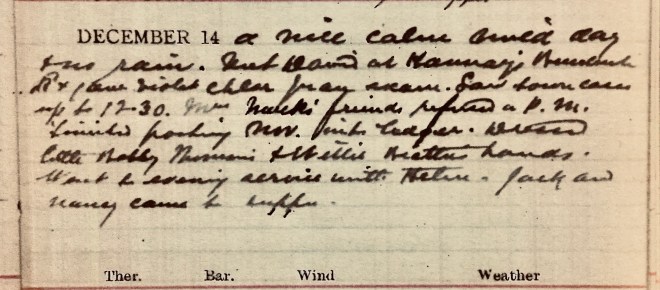 DECEMBER 14 a nice calm mild day
& no rain. Met David at Hannay's
& gave Violet Chlor for exam. Saw town cases
up to 12-30. Mrs friends P.M.
Finished posting Nov. into ledger. Dressed
little Bobby & Willie hands.
Went to evening service with Helen. Jack and
Nancy came to supper.
Ther. Bar. Wind Weather